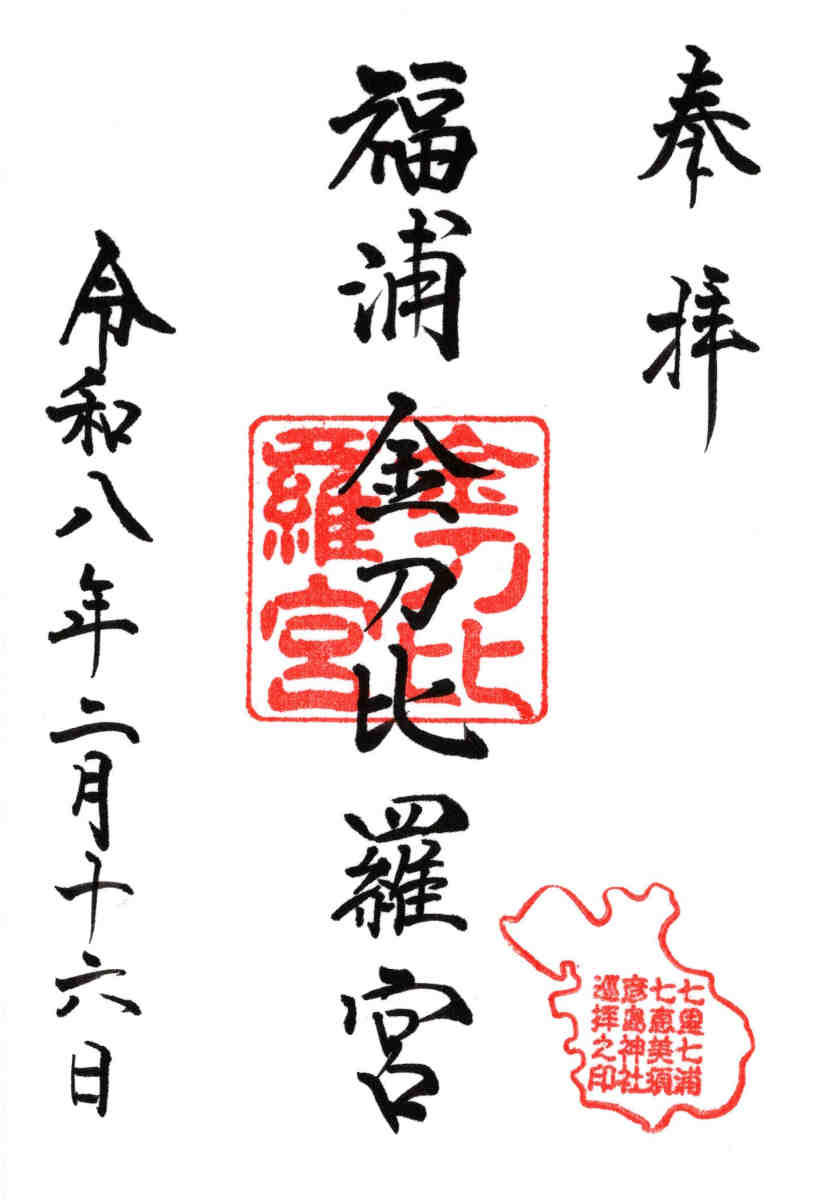 奉拝
福浦金刀比羅宮
金刀比
羅宮
令和八年二月十六日
七里七浦
七恵美須
彦島神社
巡拝之印